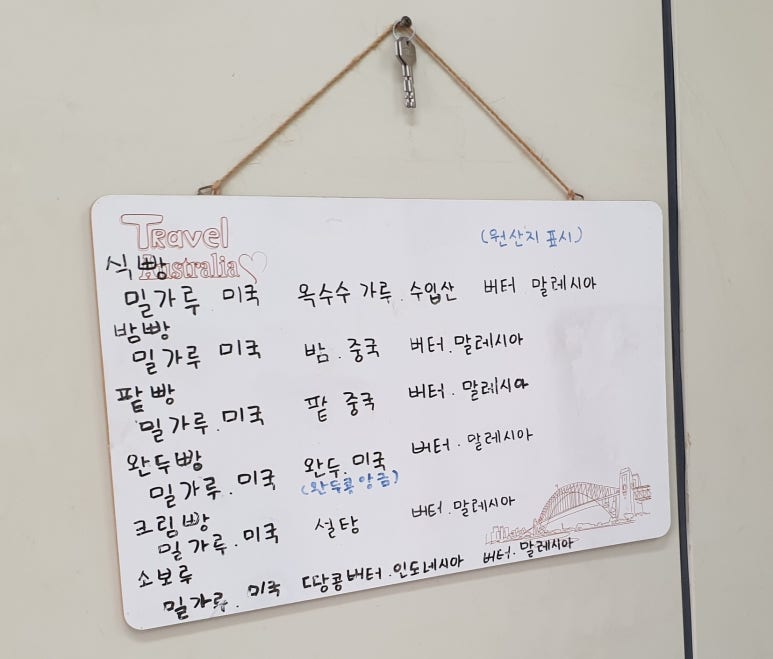 Travel
Australia
(원산지 표시)
식빵
밀가루. 미국 옥수수 가루. 수입산 버터 말레시아
밤빵
밀가루 미국 밤. 중국 버터. 말레시아
팥빵
밀가루. 미국 팥 중국 버터. 말레시아
완두빵
밀가루. 미국 완두. 미국 버터. 말레시아
(완두콩앙금)
크림빵
밀가루. 미국 설탕 버터. 말레시아
소보루
밀가루. 미국 땅콩버터. 인도네시아 버터. 말레시아